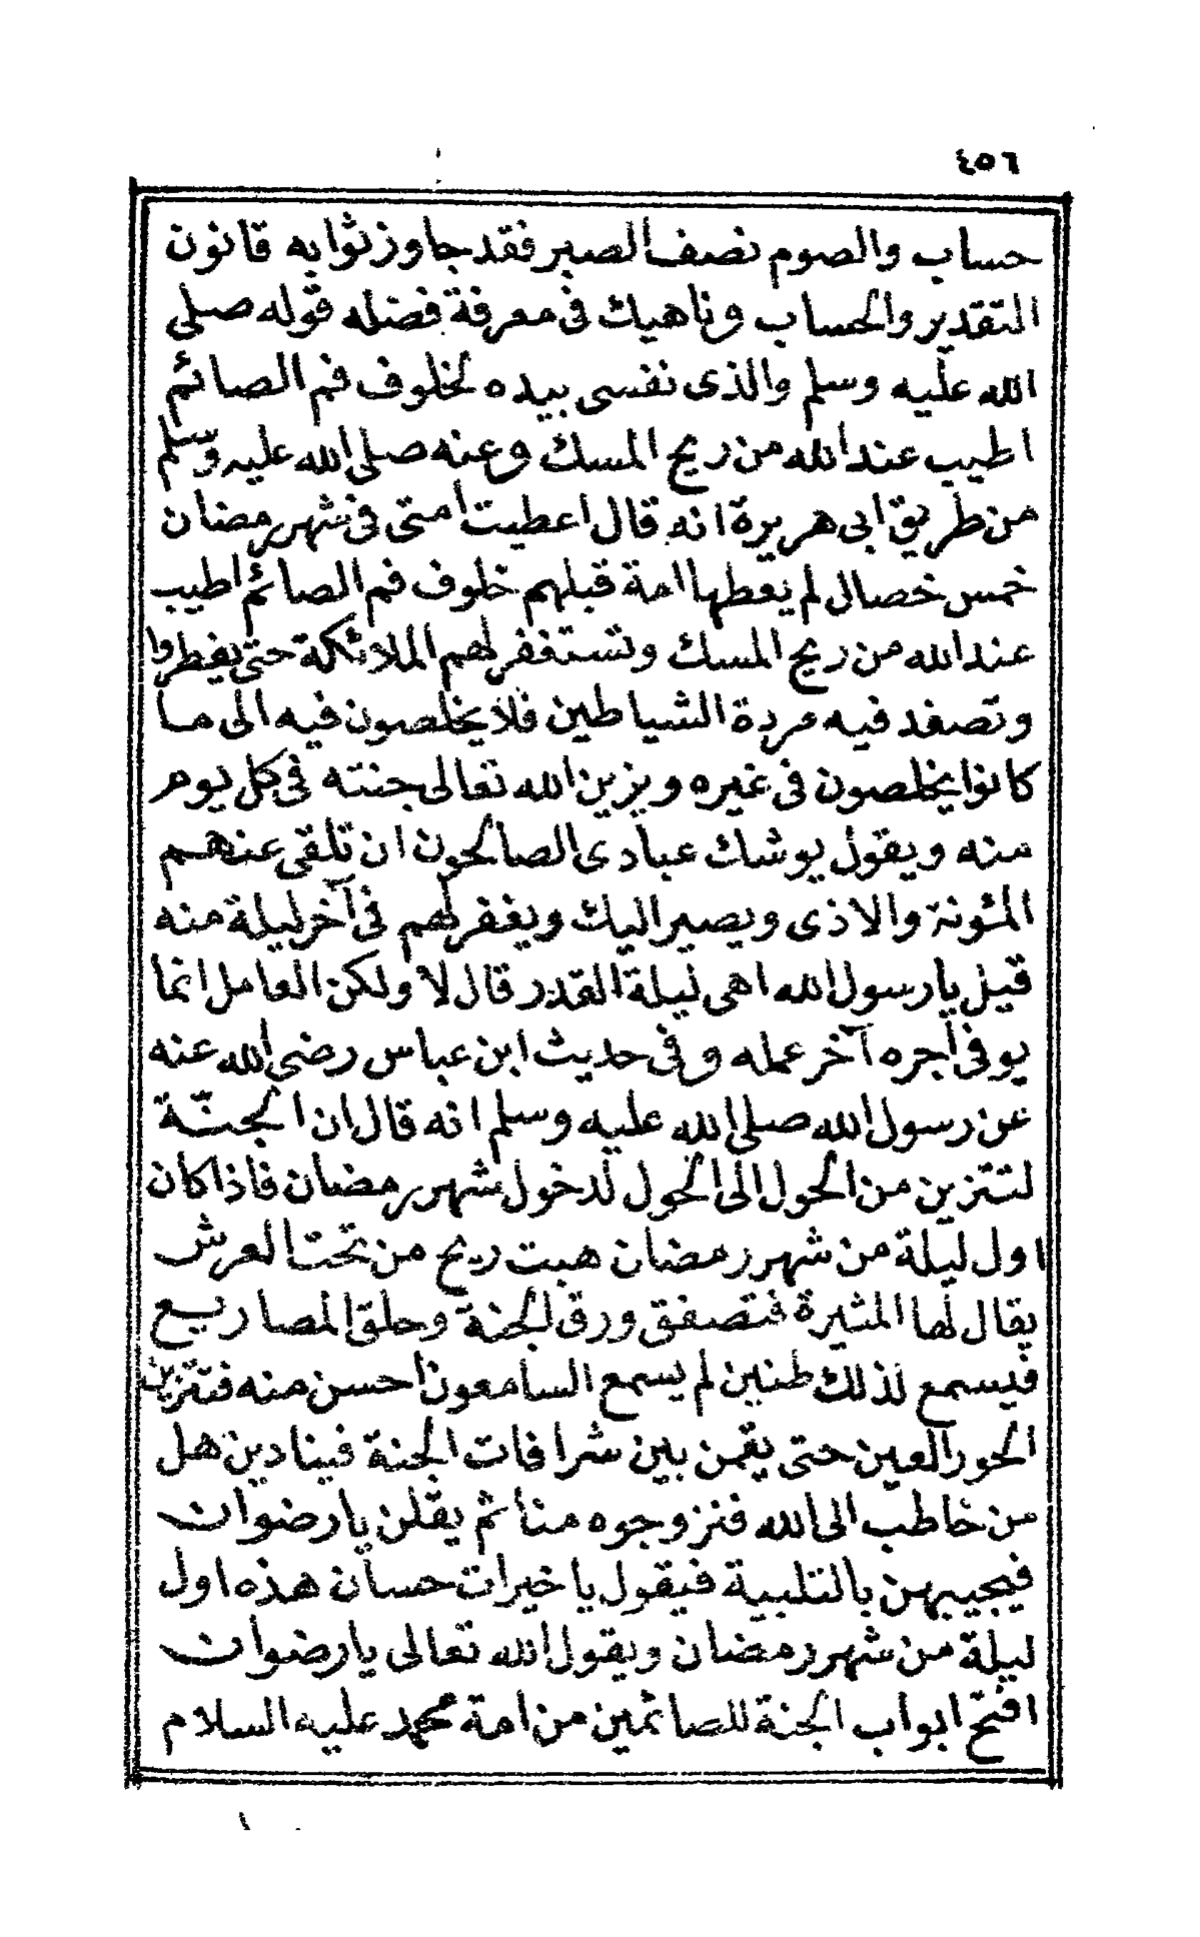 ٤٥٦
حساب والصوم نصف الصبر فقد جاوز ثوابه قانون
التقدير والحساب وناهيك فى معرفة فضله قوله صلى
الله عليه وسلم والذى نفسى بيده لخلوف فم الصائم
اطيب عند الله من ريح المسك وعنه صلى الله عليه وسلم
من طريق ابى هريرة انه قال اعطيت امتى فى شهر رمضان
خمس خصال لم يعطها امة قبلهم خلوف فم الصائم اطيب
عند الله من ريح المسك وتستغفر لهم الملائكة حتى يفطروا
وتصفد فيه مردة الشياطين فلا يخلصون فيه الى ما
كانوا يخلصون فى غيره ويزين الله تعالى جنته فى كل يوم
منه ويقول يوشك عبادى الصالحون ان تلقى عنهم
المئونة والاذى ويصير اليك ويغفر لهم فى آخر ليلة منه
قيل يا رسول الله اهى ليلة القدر قال لا ولكن العامل انما
يوفى اجره آخر عمله وفى حديث ابن عباس رضى الله عنه
عن رسول الله صلى الله عليه وسلم انه قال ان الجنّة
لتتزين من الحول الى الحول لدخول شهر رمضان فاذا كان
اول ليلة من شهر رمضان هبت ريح من تحت العرش
يقال لها المثيرة فتصفق ورق الجنة وحلق المصاريع
فيسمع لذلك طنين لم يسمع السامعون احسن منه فتتزين
الحور العين حتى يقمن بين شرافات الجنة فينادين هل
من خاطب الى الله فنزوجوه منا ثم يقلن يا رضوان
فيجيبهن بالتلبية فيقول يا خيرات حسان هذه اول
ليلة من شهر رمضان ويقول الله تعالى يا رضوان
افتح ابواب الجنة للصائمين من امة محمد عليه السلام